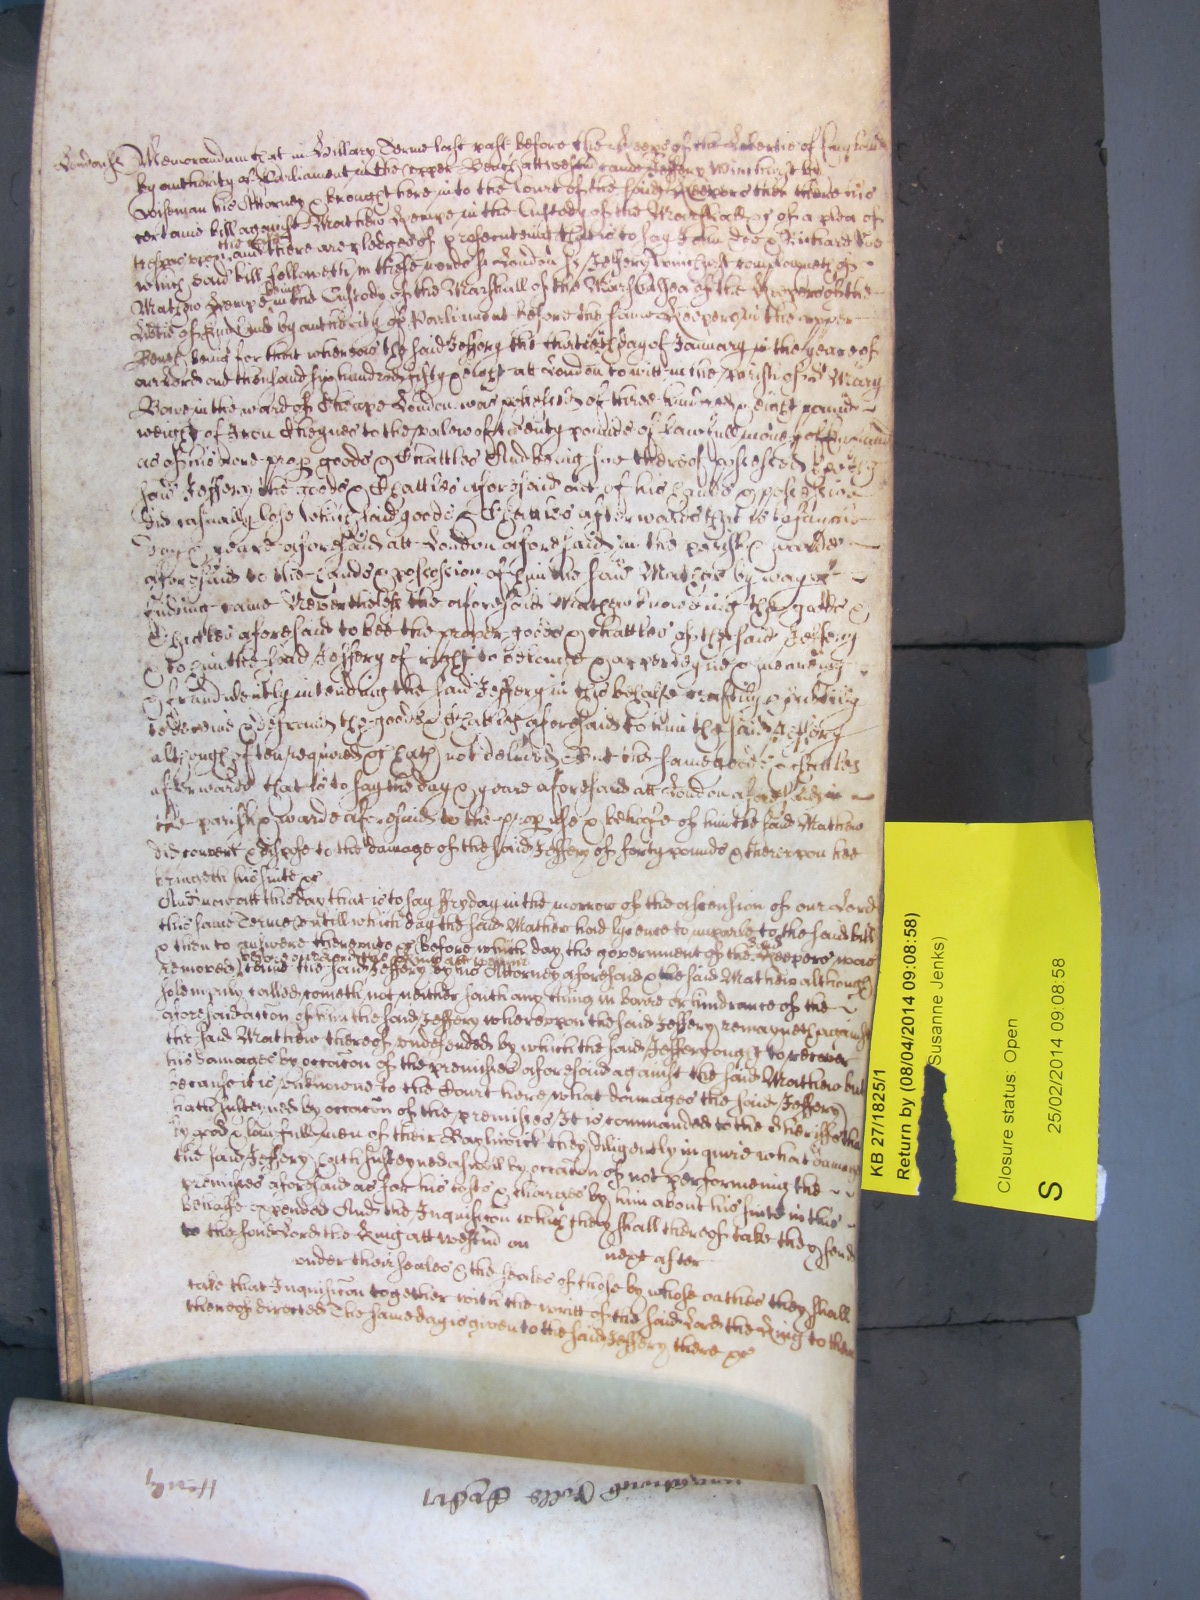 London ss Memorandum that in Hillary Terme last past before the Keepers of the Libertie of England
by authority of Parliament in the upper Bench att Westm came Jeffery Winchurst by
Wiseman his Attorney & brought here into the Court of the said Keepers then there his
certaine bill against Mathew Kempe in the Custody of the Marshall &c of a plea of
trespas upon the case and there are pledges of prosecuteing that is to say John Doe & Richard Roe
which said bill followeth in these words ss London ss Jeffery Winchurst complayneth of
Mathew Kempe being in the Custody of the Marshall of the Marshalsea of the Keepers of the
Libtie of England by authority of Parliament before the same Keepers in the upper
Bench being for that whereas the said Jeffery the thirtieth day of January in the yeare of
our Lord one thousand six hundred fifty & eight att London to witt in the parish of St Mary
Bowe in the ward of Cheape London was possessed of three hundred & eight pound
weight of Iron to the valew of twenty pounds of lawfull money of England
as of his owne prop goods & Chattles And being soe thereof possessed hee the
said Jeffery the goods & Chattles aforesaid out of his hands & possession
did casually lose which said goods & Chattles afterwards that is to say
day & yeare aforesaid att London aforesaid in the parish & warde
aforesaid to the hands & possession of him the said Mathew by way of
finding came Neverthelesse the aforesaid Mathew knoweing the goods &
Chattles aforesaid to bee the proper goods & chattles of the said Jeffery
& to him the said Jeffery of right to belonge & apperteyne & meaneing
& fraudulently intending the said Jeffery in this behalfe craftily & subtilly
to deceive & defraud the goods & Chattles aforesaid to him the said Jeffery
although often required &c hath not delivered But the same goods & chattles
afterwards that is to say the day & yeare aforesaid att London aforesaid in
the parish & warde aforesaid to the prop use & behoofe of him the said Mathew
did convert & dispose to the damage of the said Jeffery of forty pounds & thereupon hee
bringeth his suite &c
And now att this day that is to say Fryday in the morrow of the ascension of our Lord
this same Terme untill which day the said Mathew had lycence to imparle to the said bill
& then to answere thereunto &c before which day the government of the said Keepers was
removed before our Lord the King att Westmr came the said Jeffery by his Attorney aforesaid & the said Mathew although
solempnly called cometh not neither saith any thing in barre or hindrance of the
aforesaid accon of him the said Jeffery whereupon the said Jeffery remayneth against
the said Mathew thereof undefended by which the said Jeffery ought to recover
his damages by occacon of the premisses aforesaid against the said Mathew but
because it is unknowne to the Court here what damages the said Jeffery
hath susteyned by occacon of the premisses It is commanded to the Sheriffs that
by good & lawfull men of their Baylwick they diligently inquire what damages
the said Jeffery hath susteyned aswell by occacon of not performeing the
premisses aforesaid as for his costs & charges by him about his suite in this
behalfe expended And the Inquisicon which they shall thereof take they send
to the said Lord the King att Westm on next after
under their seales & the seales of those by whose oathes they shall
take that Inquisicon together with the writt of the said Lord the King to them
thereof directed The same day is given to the said Jeffery there &c
KB 27/1825/1
Return by (08/04/2014 09:08:58)
Susanne Jenks)
Closure status: Open
25/02/2014 09:08:58
S